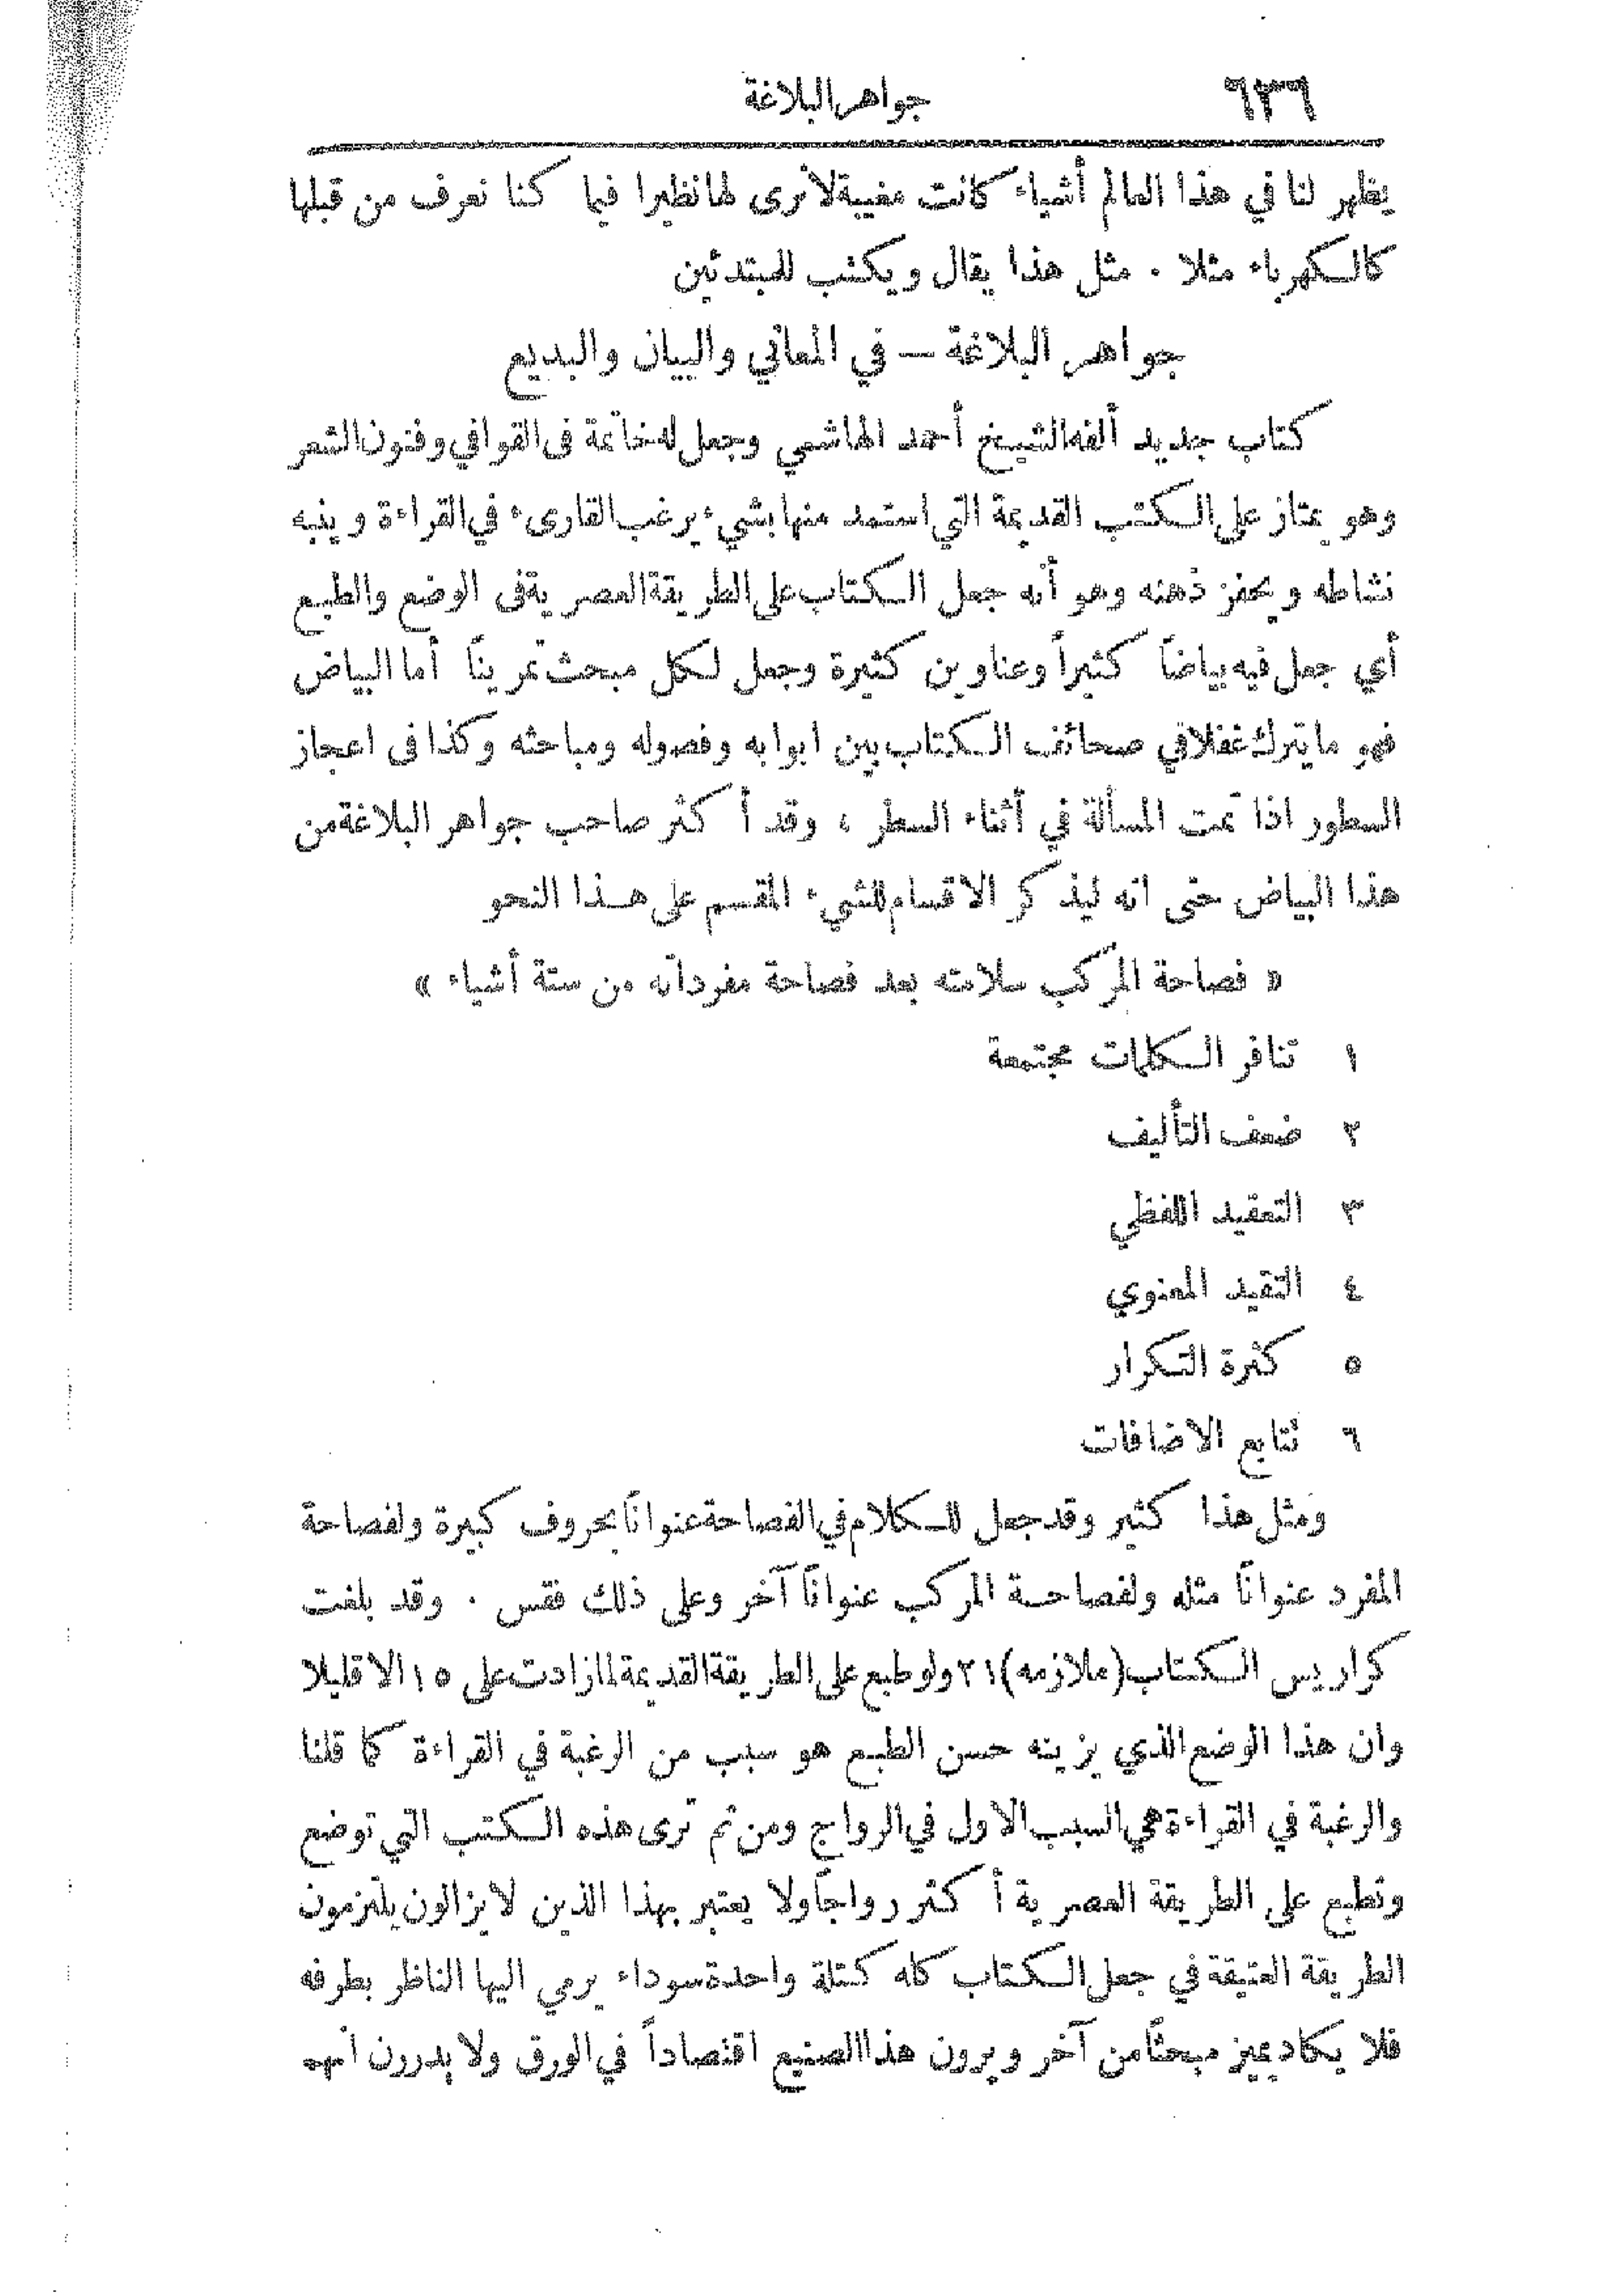 ٦٣٦ جواهر البلاغة
يظهر لنا في هذا العالم أشياء كانت مغيبة لا نرى لها نظيرا فيما كنا نعرف من قبلها
كالكهرباء مثلا . مثل هذا يقال ويكتب للمبتدئين
جواهر البلاغة — في المعاني والبيان والبديع
كتاب جديد ألفه الشيخ أحمد الهاشمي وجعل له خاتمة في القوافي وفنون الشعر
وهو يمتاز على الكتب القديمة التي استمد منها بشيء يرغب القارىء في القراءة وينبه
نشاطه ويحفز ذهنه وهو أنه جعل الكتاب على الطريقة العصرية فى الوضع والطبع
أي جعل فيه بياضاً كثيراً وعناوين كثيرة وجعل لكل مبحث تمريناً أما البياض
فهو ما يترك غفلا في صحائف الكتاب بين ابوابه وفصوله ومباحثه وكذا فى اعجاز
السطور اذا تمت المسألة في أثناء السطر ، وقد أكثر صاحب جواهر البلاغة من
هذا البياض حتى انه ليذكر الاقسام للشيء المقسم على هذا النحو
« فصاحة المركب سلامته بعد فصاحة مفرداته من ستة أشياء »
١ تنافر الكلمات مجتمعة
٢ ضعف التأليف
٣ التعقيد اللفظي
٤ التقيد المعنوي
٥ كثرة التكرار
٦ تتابع الاضافات
ومثل هذا كثير وقد جعل للكلام في الفصاحة عنواناً بحروف كبيرة ولفصاحة
المفرد عنواناً مثله ولفصاحة المركب عنواناً آخر وعلى ذلك فقس . وقد بلغت
كراريس الكتاب (ملازمه) ٢١ ولو طبع على الطريقة القديمة لما زادت على ١٥ الا قليلا
وان هذا الوضع الذي يزينه حسن الطبع هو سبب من الرغبة في القراءة كما قلنا
والرغبة في القراءة هي السبب الاول في الرواج ومن ثم ترى هذه الكتب التي توضع
وتطبع على الطريقة العصرية أكثر رواجاً ولا يعتبر بهذا الذين لا يزالون يلتزمون
الطريقة العتيقة في جعل الكتاب كله كتلة واحدة سوداء يرمي اليها الناظر بطرفه
فلا يكاد يميز مبحثاً من آخر ويرون هذا الصنيع اقتصاداً في الورق ولا يدرون أنهم